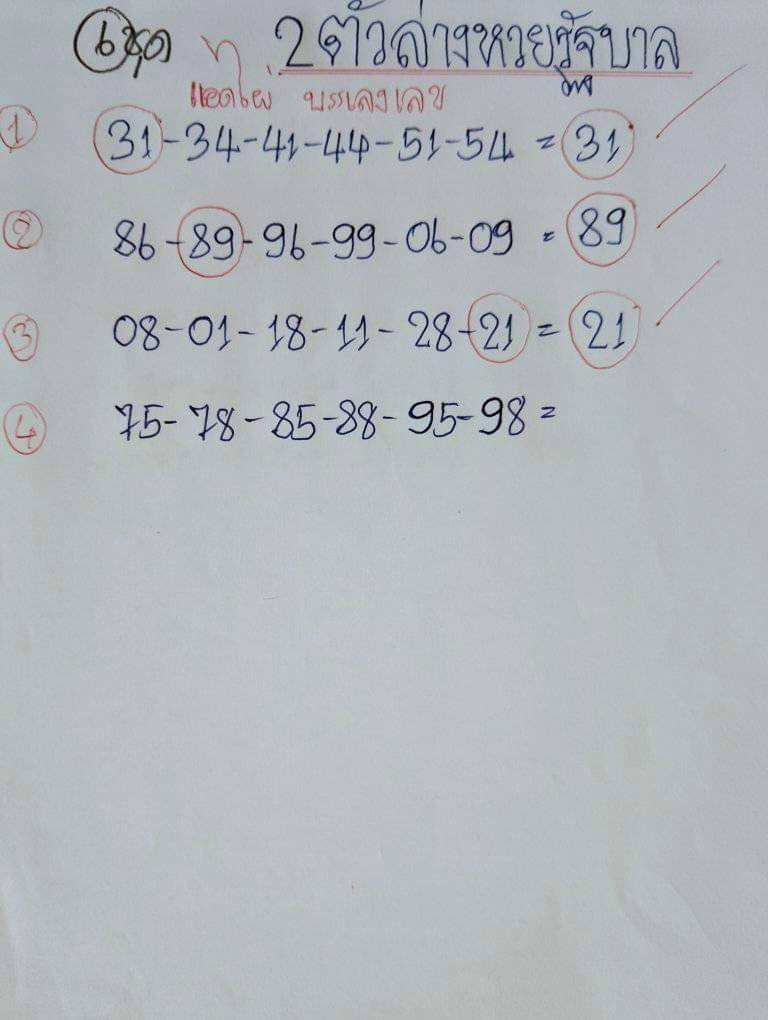 6ชุด 2ตัวล่างหวยรัฐบาล
แอดไผ่ บรรเลงเลข
① 31-34-41-44-51-54 = 31
② 86-89-96-99-06-09 = 89
③ 08-01-18-11-28-21 = 21
④ 75-78-85-88-95-98 =